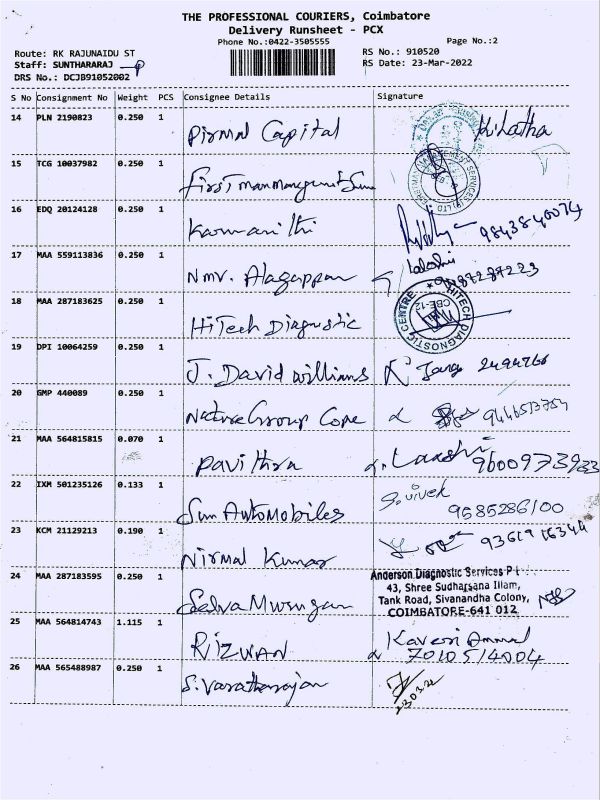 THE PROFESSIONAL COURIERS, Coimbatore
Delivery Runsheet - PCX
Phone No.:0422-3505555
Page No.:2
Route: RK RAJUNAIDU ST
RS No.: 910520
Staff: SUNTHARARAJ
RS Date: 23-Mar-2022
DRS No.: DCJB91052002
S No Consignment No Weight PCS Consignee Details Signature
14 PLN 2190823 0.250 1 Pirmal Capital K. Latha
15 TCG 10037982 0.250 1 First man
16 EDQ 20124128 0.250 1 9843840074
17 MAA 559113836 0.250 1 Nmv. Alagappan
18 MAA 287183625 0.250 1 HiTech Diagnostic HITECH DIAGNOSTIC CENTRE CBE-12
19 DPI 10064259 0.250 1 J. David williams
20 GMP 440089 0.250 1 Nature Group
21 MAA 564815815 0.070 1 Pavithra 9600973933
22 IXM 501235126 0.133 1 Sun AutoMobiles S. vivek
9585286100
23 KCM 21129213 0.190 1 Nirmal Kumar
24 MAA 287183595 0.250 1 Selva Murugan
Anderson Diagnostic Services P
43, Shree Sudharsana Illam,
Tank Road, Sivanandha Colony,
COIMBATORE-641 012
25 MAA 564814743 1.115 1 RIZWAN Kaveri Ammal
7010514004
26 MAA 565488987 0.250 1 S. Varatharajan